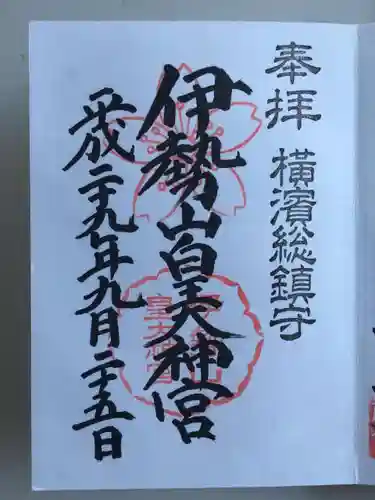 奉拝 横濱総鎮守
伊勢山皇大神宮
平成二十九年九月二十五日